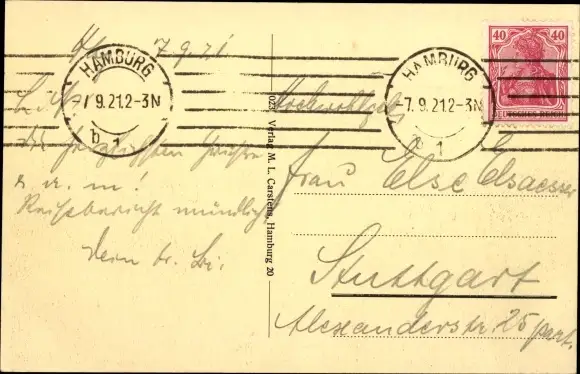 7.9.21
HAMBURG
7.9.21.2-3N
b 1
herzlichsten Grüsse
u. m!
Reisebericht mündlich
023 Verlag M. L. Carstens, Hamburg 20
HAMBURG
-7.9.21.2-3N
1
40 40
DEUTSCHES REICH
Frau Else Elsaesser
Stuttgart
Alexanderstr. 25 part.